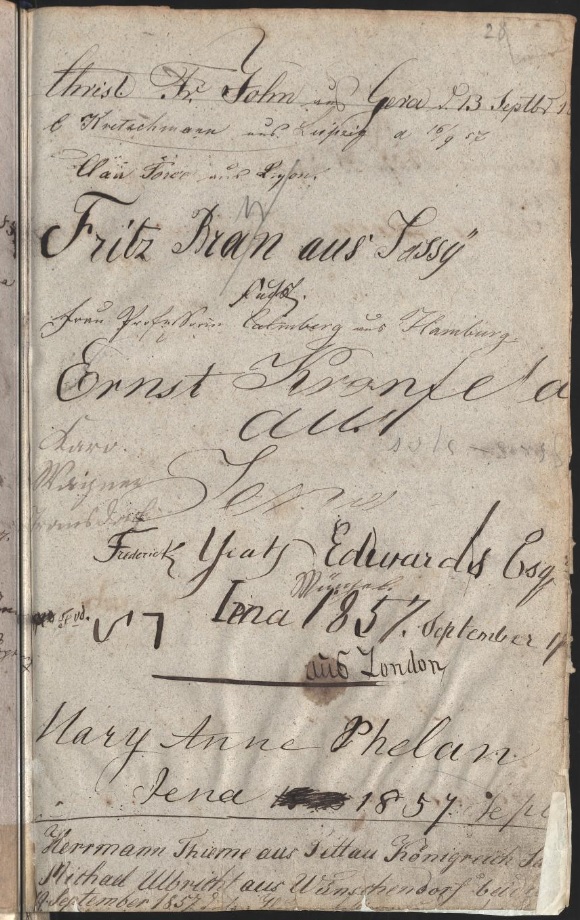 28
Christ Fr. John aus Gera d. 13 Septbr
C Kretschmann aus Leipzig d 16/9 57
aus
Fritz Bran aus Jassy
Frau Professorin Calmberg aus Hamburg
Ernst Kronfeld
aus
Karo.
Wagner
Jena
Frederick Yeats Edwards Esq
Jena 1857. September
aus London
Mary Anne Phelan
Jena 1857. Sept
Herrmann Thieme aus Zittau Königreich
Michael Ulbricht aus Wünschendorf bei
September 1857